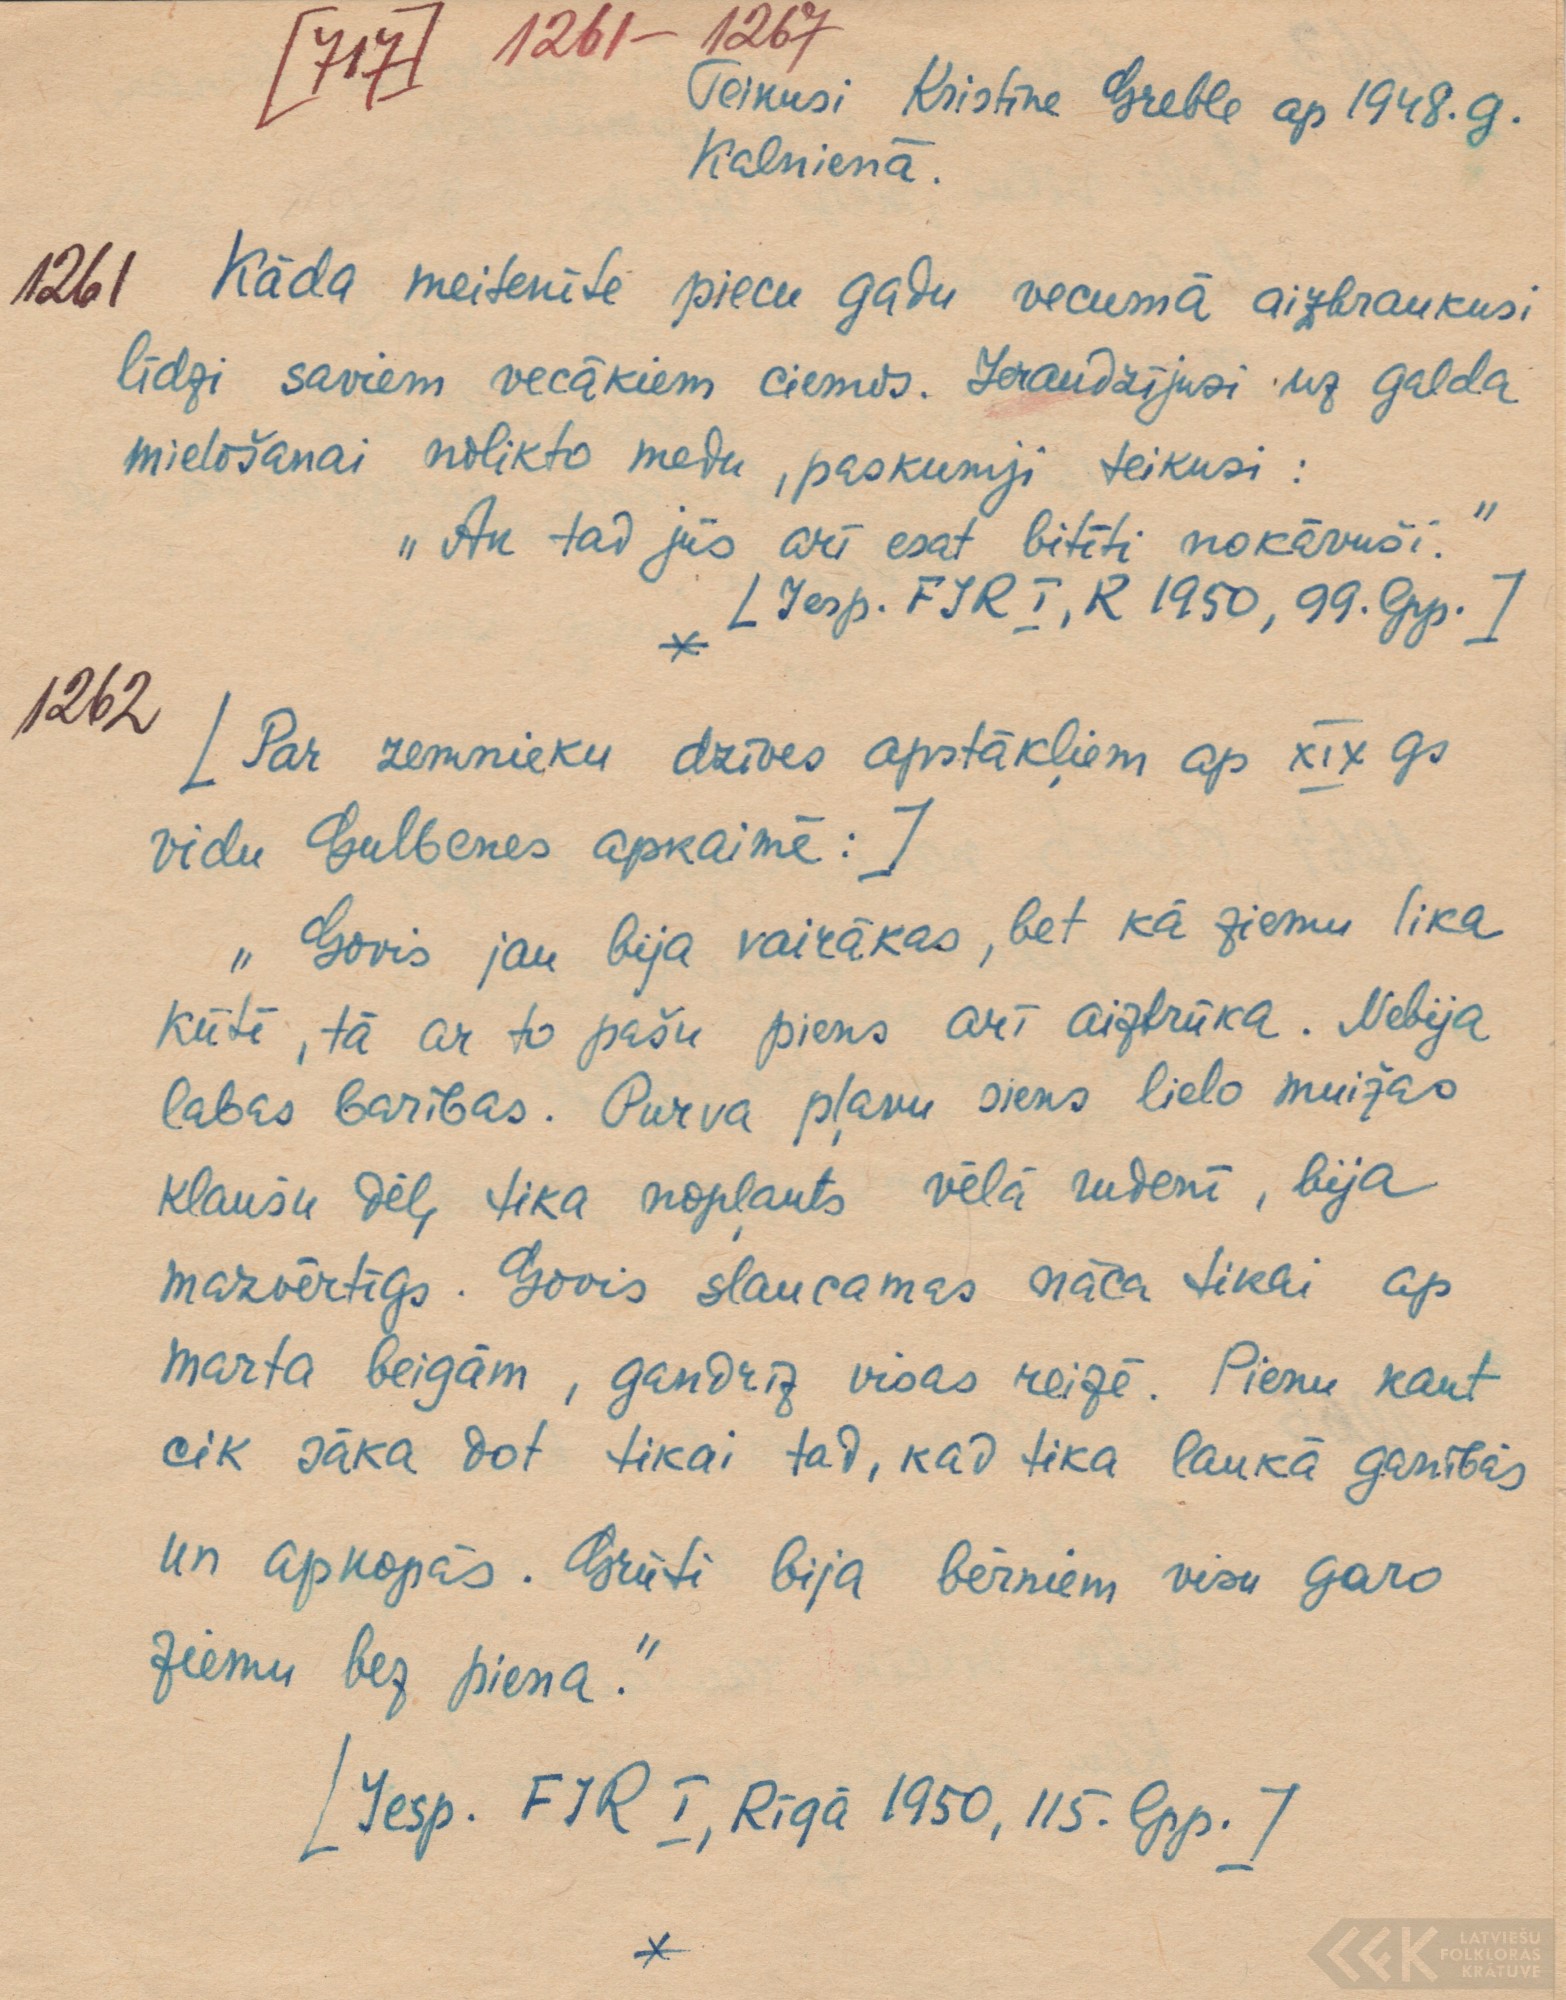 [717] 1261 – 1267
Teikusi Kristīne Greble ap 1948. g.
Kalnienā.
1261 Kāda meitenīte piecu gadu vecumā aizbraukusi
līdzi saviem vecākiem ciemos. Ieraudzījusi uz galda
mielošanai nolikto medu, paskumji teikusi:
„Ak tad jūs arī esat bitīti nokāvuši."
[Iesp. FIR I, R 1950, 99. lpp.]
*
1262 [Par zemnieku dzīves apstākļiem ap XIX gs
vidu Gulbenes apkaimē:]
„Govis jau bija vairākas, bet kā ziemu lika
kūtī, tā ar to pašu piens arī aiztrūka. Nebija
labas barības. Purva pļavu siens lielo muižas
klaušu dēļ tika nopļauts vēlā rudenī, bija
mazvērtīgs. Govis slaucamas nāca tikai ap
marta beigām, gandrīz visas reizē. Pienu kaut
cik sāka dot tikai tad, kad tika laukā ganībās
un apkopās. Grūti bija bērniem visu garo
ziemu bez piena."
[Iesp. FIR I, Rīgā 1950, 115. lpp.]
*
LATVIEŠU
FOLKLORAS
KRĀTUVE